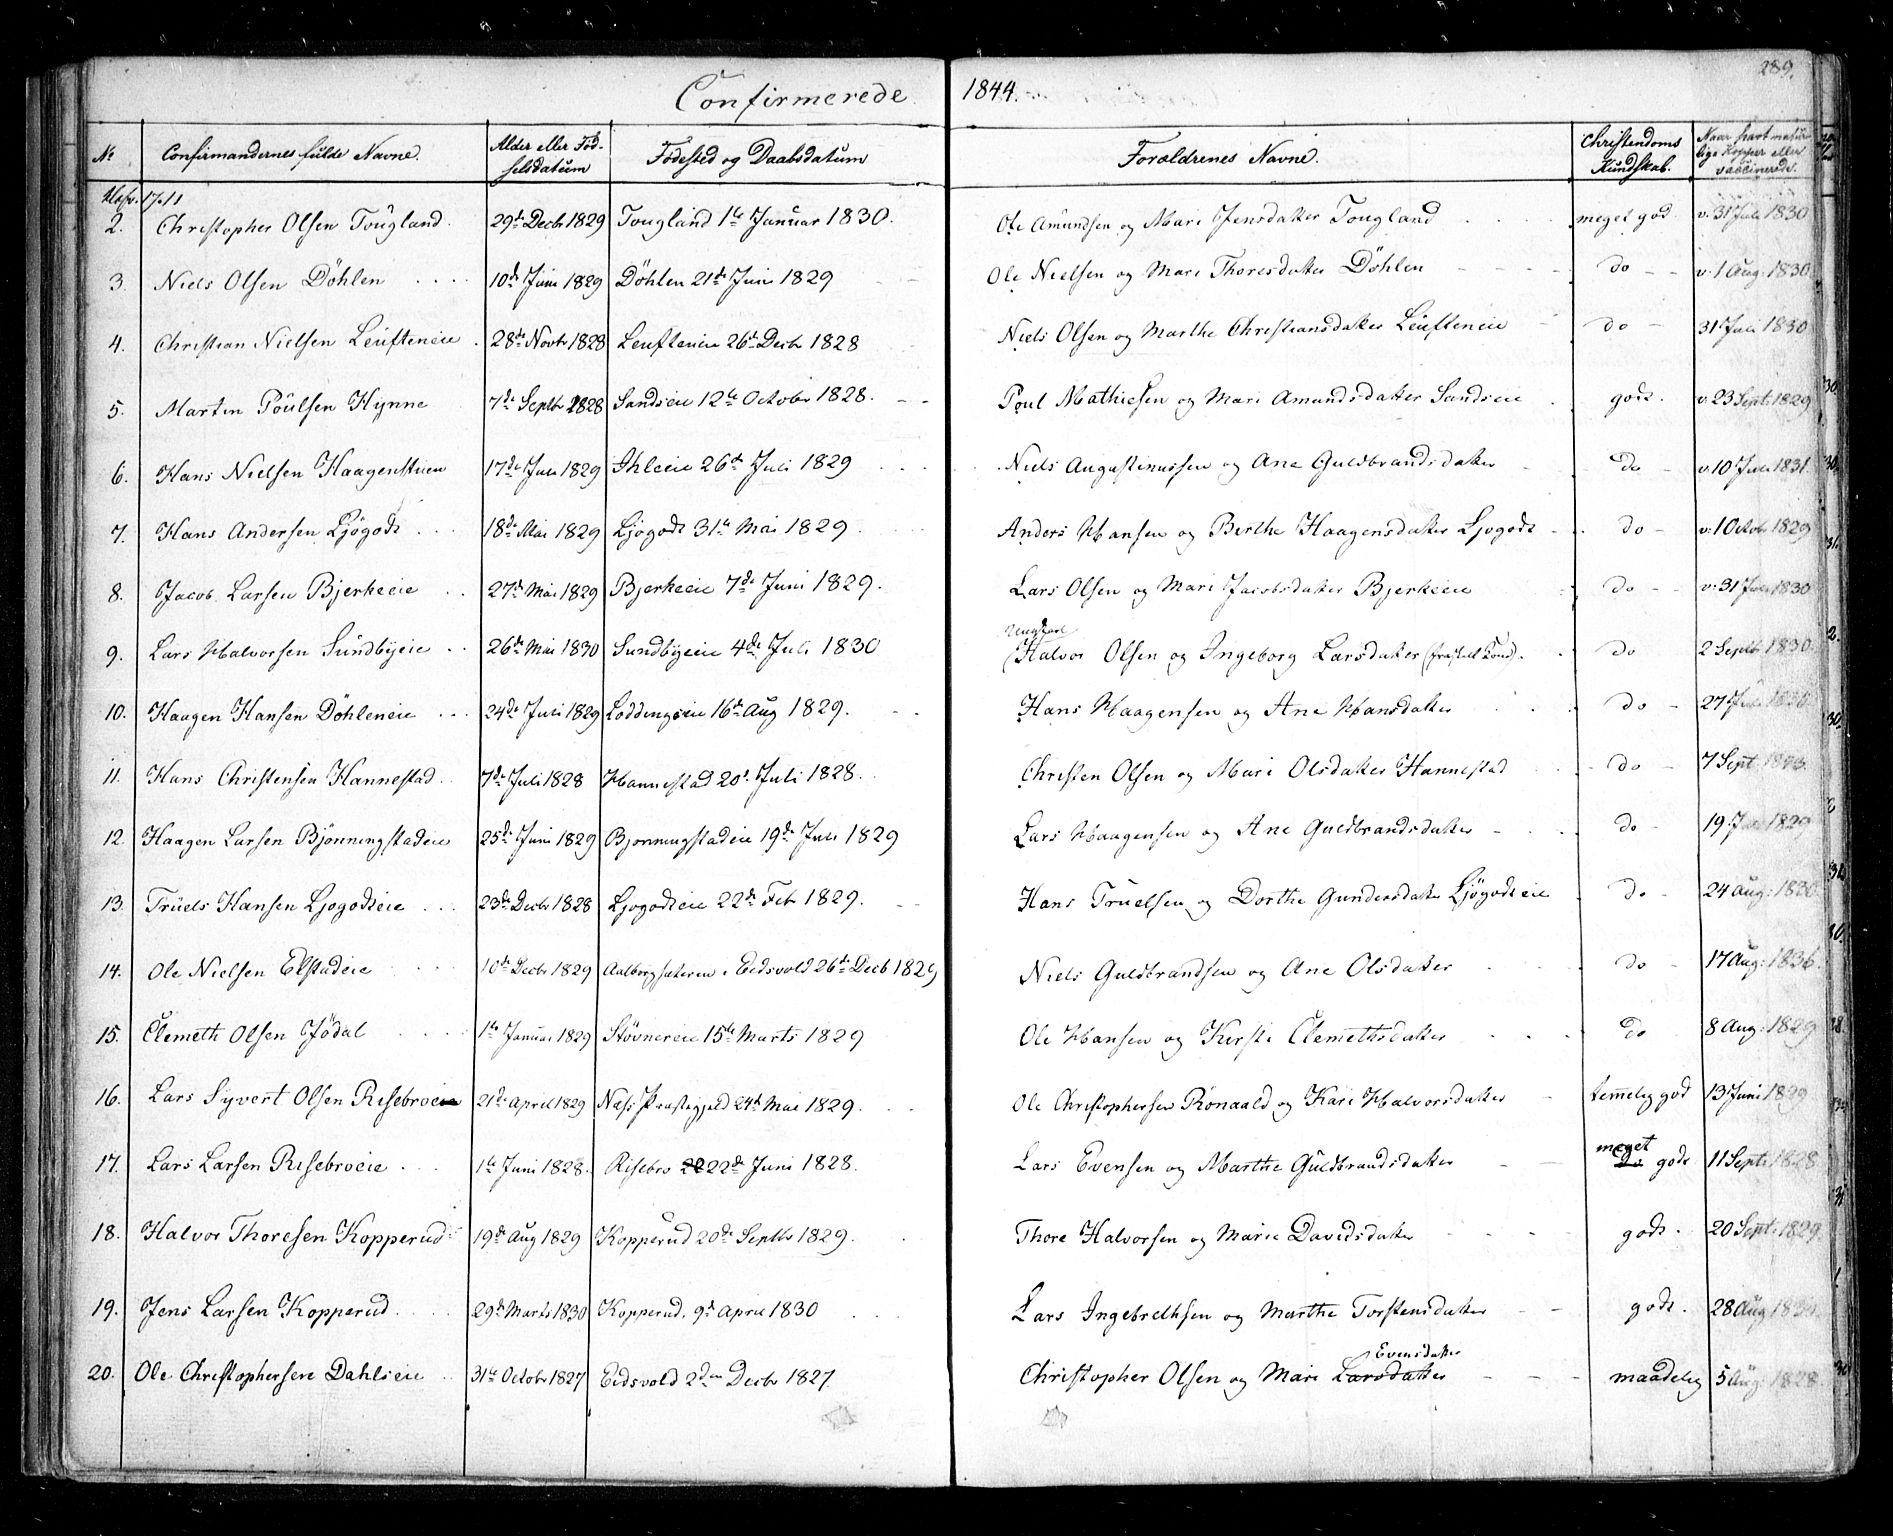 289.
Confirmerede 1844.
No Confirmandernes fulde Navne. Alder eller Fødselsdatum Fødested og Daabsdatum Forældrenes Navne. Christendoms Kundskab. Naar havt naturlige Kopper eller vaccinerede.
Ullsfr. 17.11
2. Christopher Olsen Tougland. 29de Decbr 1829 Tougland 1te Januar 1830. Ole Amundsen og Mari Jensdatter Tougland meget god v. 31 Juli 1830
3. Niels Olsen Döhlen 10de Juni 1829 Döhlen 21de Juni 1829 Ole Nielsen og Mari Thoresdatter Döhlen do v. 1 Aug. 1830
4. Christian Nielsen Leufteneie 28de Novbr 1828 Leufteneie 26de Decbr 1828 Niels Olsen og Marthe Christiansdatter Leufteneie do 31 Juli 1830
5. Martin Poulsen Hynne 7de Septbr 1828 Sandseie 12te Octobr 1828. Poul Mathiesen og Mari Amundsdatter Sandseie godt. v. 23 Sept. 1829
6. Hans Nielsen Haagenstuen 17de Juli 1829 Ihleie 26de Juli 1829 Niels Augustinussen og Ane Guldbrandsdatter do v. 10 Juli 1831.
7. Hans Andersen Ljögodt 18de Mai 1829 Ljögodt 31te Mai 1829 Anders Hansen og Berthe Haagensdatter Ljogodt do v. 1 Octob. 1829
8. Jacob Larsen Bjerkeeie 27de Mai 1829 Bjerkeeie 7de Juni 1829. Lars Olsen og Mari Jacobsdatter Bjerkeeie do v. 31 Juli 1830
9. Lars Halvorsen Sundbyeie 26de Mai 1830 Sundbyeie 4de Juli 1830 Ungkarl Halvor Olsen og Ingeborg Larsdatter do 2 Septbr 1830
10. Haagen Hansen Döhleneie 24de Juli 1829 Loddengseie 16de Aug 1829. Hans Haagensen og Ane Hansdatter do 27 1830.
11. Hans Christensen Hannestad. 7de Juli 1828 Hannestad 20de Juli 1828. Christen Olsen og Mari Olsdatter Hannestad do 7 Sept.
12. Haagen Larsen Bjönningstadeie 25de Juni 1829 Bjonningstadeie 19de Juli 1829 Lars Haagensen og Ane Guldbrandsdatter do 19 1829
13. Truels Hansen Ljogodteie 23de Decbr 1828 Ljogodteie 22de Feb 1829. Hans Truelsen og Dorthe Gundersdatter Ljögodteie do 24 Aug: 1830
14. Ole Nielsen Elstadeie 10de Decbr 1829 Aalborgsæteren i Eedsvold 26de Decb 1829 Niels Guldbrandsen og Ane Olsdatter do 17 Aug: 1836.
15. Clemeth Olsen Jödal 1te Januar 1829 Stövnereie 15de Marts 1829 Ole Hansen og Kirsti Clemethsdatter do 8 Aug: 1829
16. Lars Syvert Olsen Risebroeie 21de April 1829 Næss Præstegjeld 24de Mai 1829. Ole Christophersen Rönaald og Kari Halvorsdatter temelig god 13 Juni 1829
17. Lars Larsen Risebroeie 1te Juni 1828. Risebro 22de Juni 1828. Lars Evensen og Marthe Guldbrandsdatter meget godt 11 Sept. 1828
18. Halvor Thoresen Kopperud 19de Aug 1829 Kopperud 20de Septbr 1829. Thore Halvorsen og Marie Davidsdatter godt. 20 Sept. 1829.
19. Jens Larsen Kopperud 29de Marts 1830 Kopperud. 9de April 1830 Lars Ingebrethsen og Marthe Torstensdatter godt. 28 Aug 1830.
20. Ole Christophersen Dahleie 31te Octobr 1827 Eedsvold 2den Decbr 1827. Christopher Olsen og Mari Larsdatter Evensdatter maadelig 5 Aug. 1828.